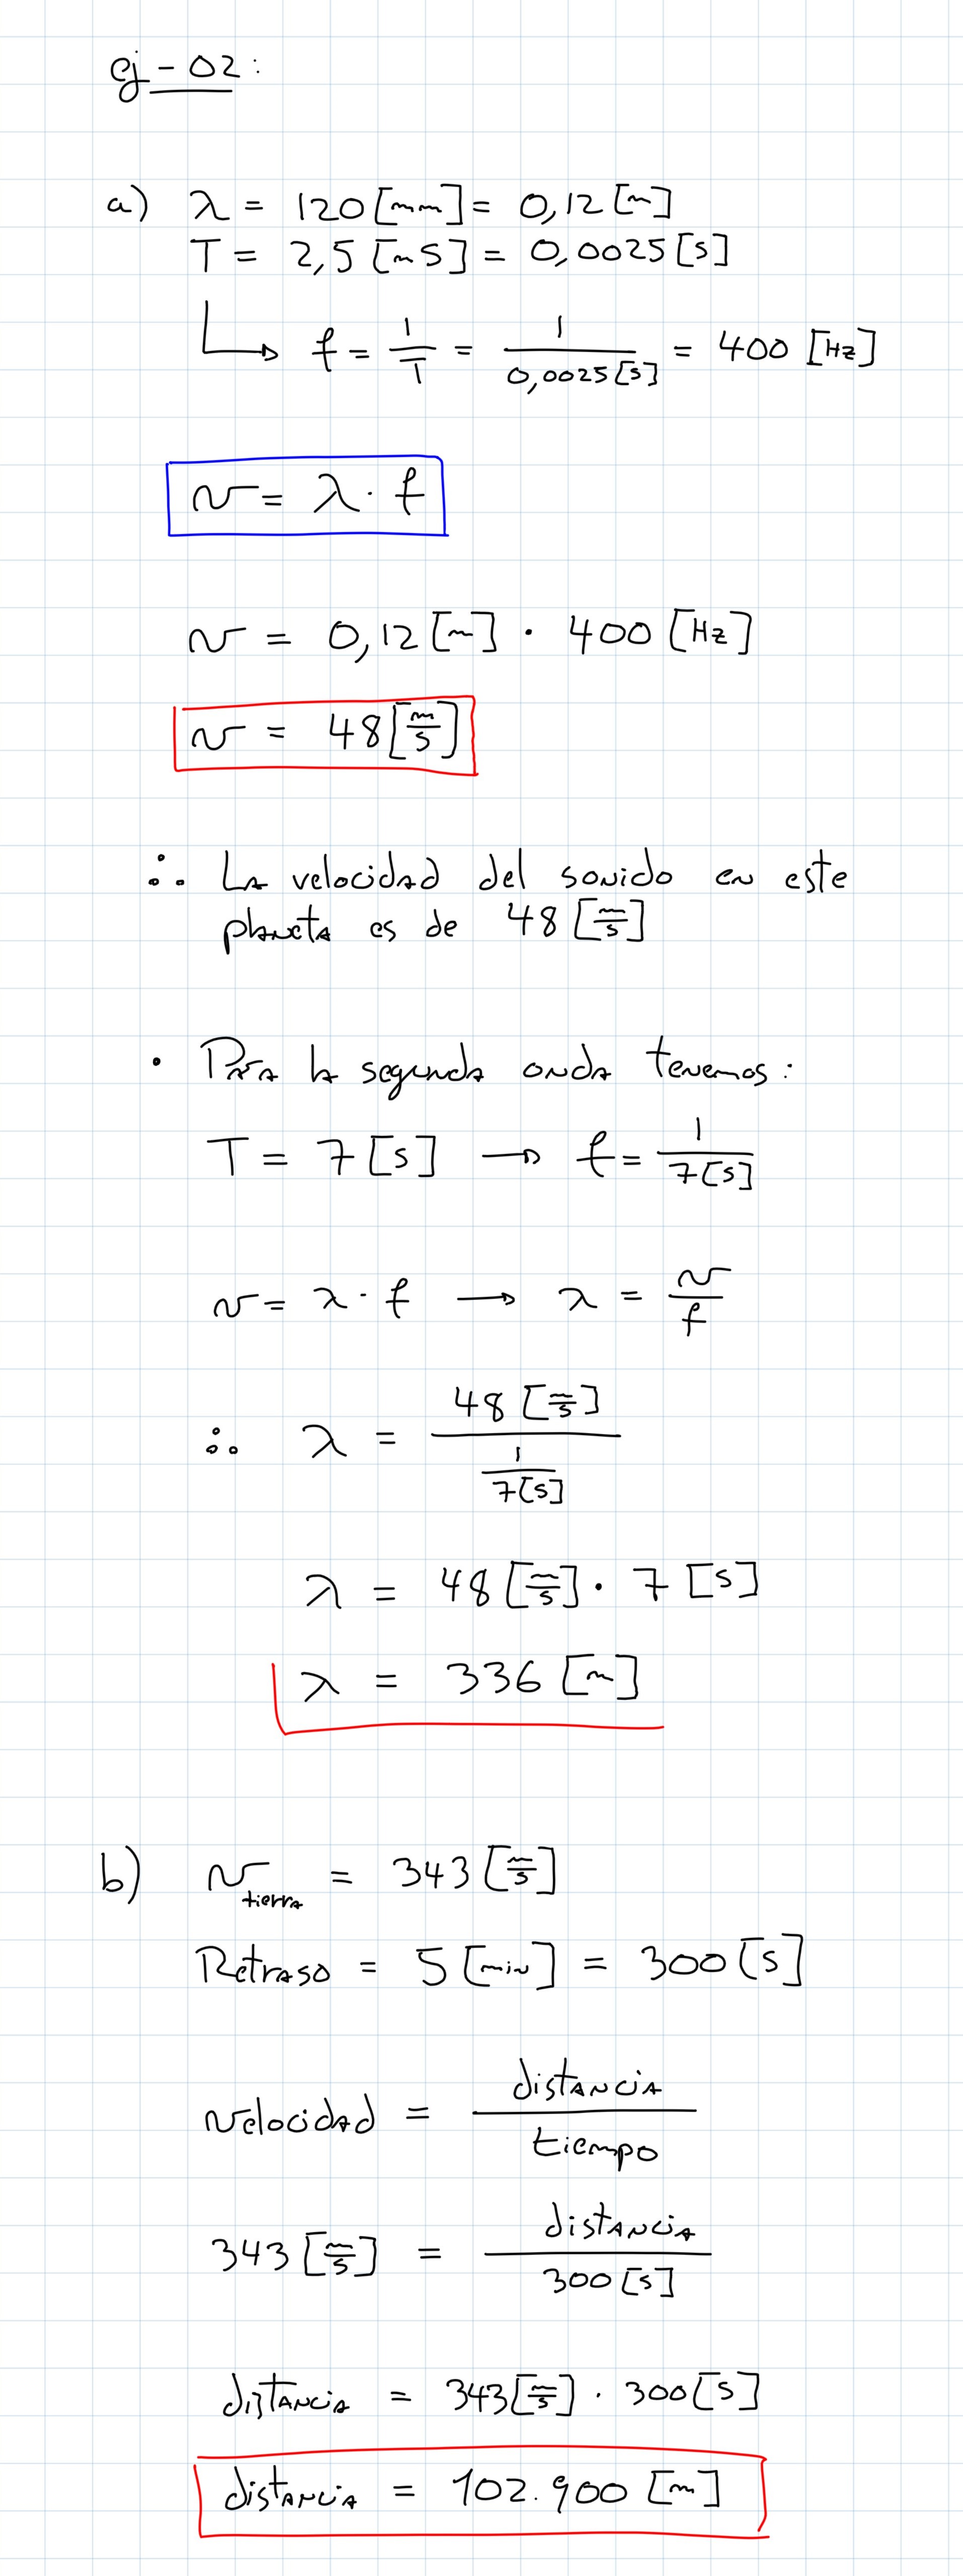 ej-02:
a) λ = 120 [mm] = 0,12 [m]
T = 2,5 [mS] = 0,0025 [s]
f = 1/T = 1/0,0025[s] = 400 [Hz]
v = λ · f
v = 0,12 [m] · 400 [Hz]
v = 48 [m/s]
∴ La velocidad del sonido en este
planeta es de 48 [m/s]
• Para la segunda onda tenemos:
T = 7 [s] → f = 1/7[s]
v = λ · f → λ = v/f
∴ λ = 48 [m/s] / 1/7[s]
λ = 48 [m/s] · 7 [s]
λ = 336 [m]
b) v tierra = 343 [m/s]
Retraso = 5 [min] = 300 [s]
velocidad = distancia/tiempo
343 [m/s] = distancia/300 [s]
distancia = 343 [m/s] · 300 [s]
distancia = 102.900 [m]